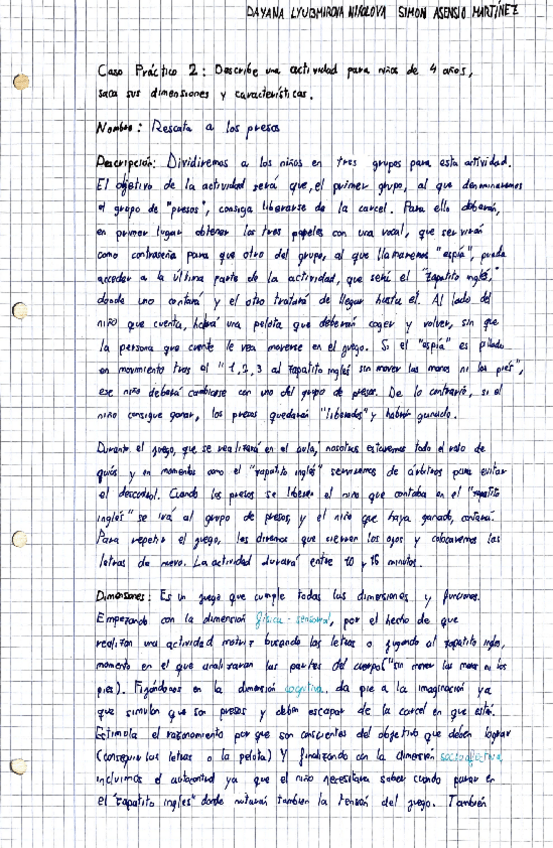 DAYANA LYUBMIROVA NIKOLOVA SIMON ASENSIO MARTÍNEZ
Caso Práctico 2: Describe una actividad para niños de 4 años,
saca sus dimensiones y características.
Nombre: Rescata a los presos
Descripción: Dividiremos a los niños en tres grupos para esta actividad.
El objetivo de la actividad será que, el primer grupo, al que denominaremos
el grupo de "presos", consiga liberarse de la carcel. Para ello deberán,
en primer lugar obtener los tres papeles con una vocal, que servirán
como contraseña para que otro del grupo, al que llamaremos "espía", pueda
acceder a la última parte de la actividad, que será el "zapatito inglés,"
donde uno contará y el otro tratará de llegar hasta él. Al lado del
niño que cuenta, habrá una pelota que deberán coger y volver, sin que
la persona que cuente le vea moverse en el juego. Si el "espía" es pillado
en movimiento tras el "1,2,3 al zapatito inglés sin mover las manos ni los pies",
ese niño deberá cambiarse con uno del grupo de presos. De lo contrario, si el
niño consigue ganar, los presos quedarán "liberados" y habrán ganado.
Durante el juego, que se realizará en el aula, nosotros estaremos todo el rato de
guías y en momentos como el "zapatito inglés" serviremos de árbitros para evitar
el descontrol. Cuando los presos se liberen el niño que contaba en el "zapatito
inglés" se irá al grupo de presos, y el niño que haya ganado, contará.
Para repetir el juego, les diremos que cierren los ojos y colocaremos las
letras de nuevo. La actividad durará entre 10 y 15 minutos.
Dimensiones: Es un juego que cumple todas las dimensiones y funciones.
Empezando con la dimensión física-sensorial, por el hecho de que
realizan una actividad motriz buscando las letras o jugando al zapatito inglés,
momento en el que analizaran las partes del cuerpo ("sin mover las manos ni los
pies). Fijándonos en la dimensión cognitiva, da pie a la imaginación ya
que simulan que son presos y deben escapar de la carcel en que están.
Estimula el razonamiento por que son conscientes del objetivo que deben lograr
(conseguir las letras o la pelota) Y finalizando con la dimensión socioafectiva,
incluimos el autocontrol ya que el niño necesitara saber cuando parar en
el "zapatito inglés" donde notaran tambien la tensión del juego. También